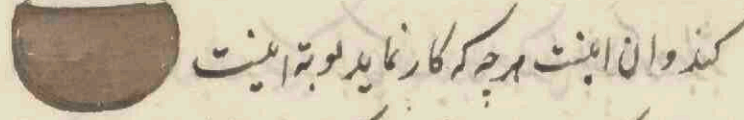 کنذ و ان اینست هرچه که کار نماید بوبۀ اینست